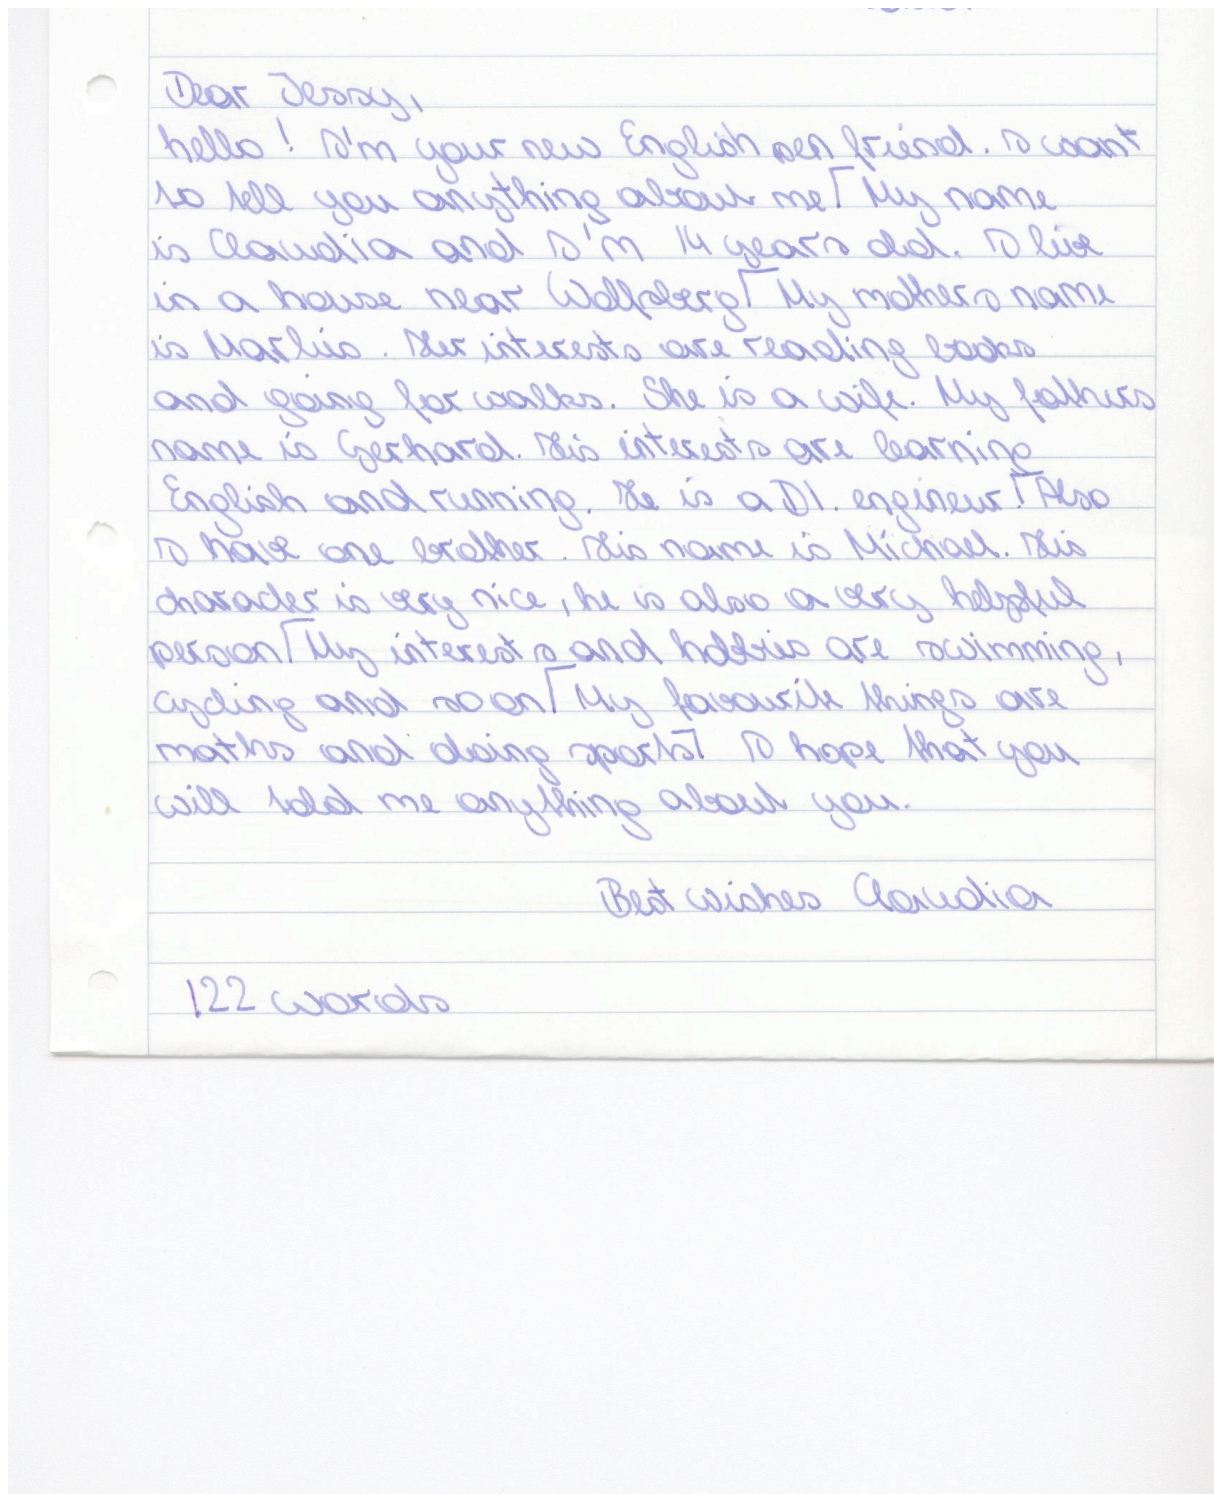 Dear Jessy,
hello! I'm your new English pen friend. I want
to tell you anything about me⌈ My name
is Claudia and I'm 14 years old. I live
in a house near Wolfsberg⌈ My mothers name
is Marlies. Her interests are reading books
and going for walks. She is a wife. My fathers
name is Gerhard. His interests are learning
English and running. He is a DI. engineur.⌈ Also
I have one brother. His name is Michael. His
character is very nice, he is also a very helpful
person⌈ My interests and hobbies are swimming,
cycling and so on⌈ My favourite things are
maths and doing sports⌉ I hope that you
will told me anything about you.
Best wishes Claudia
122 words